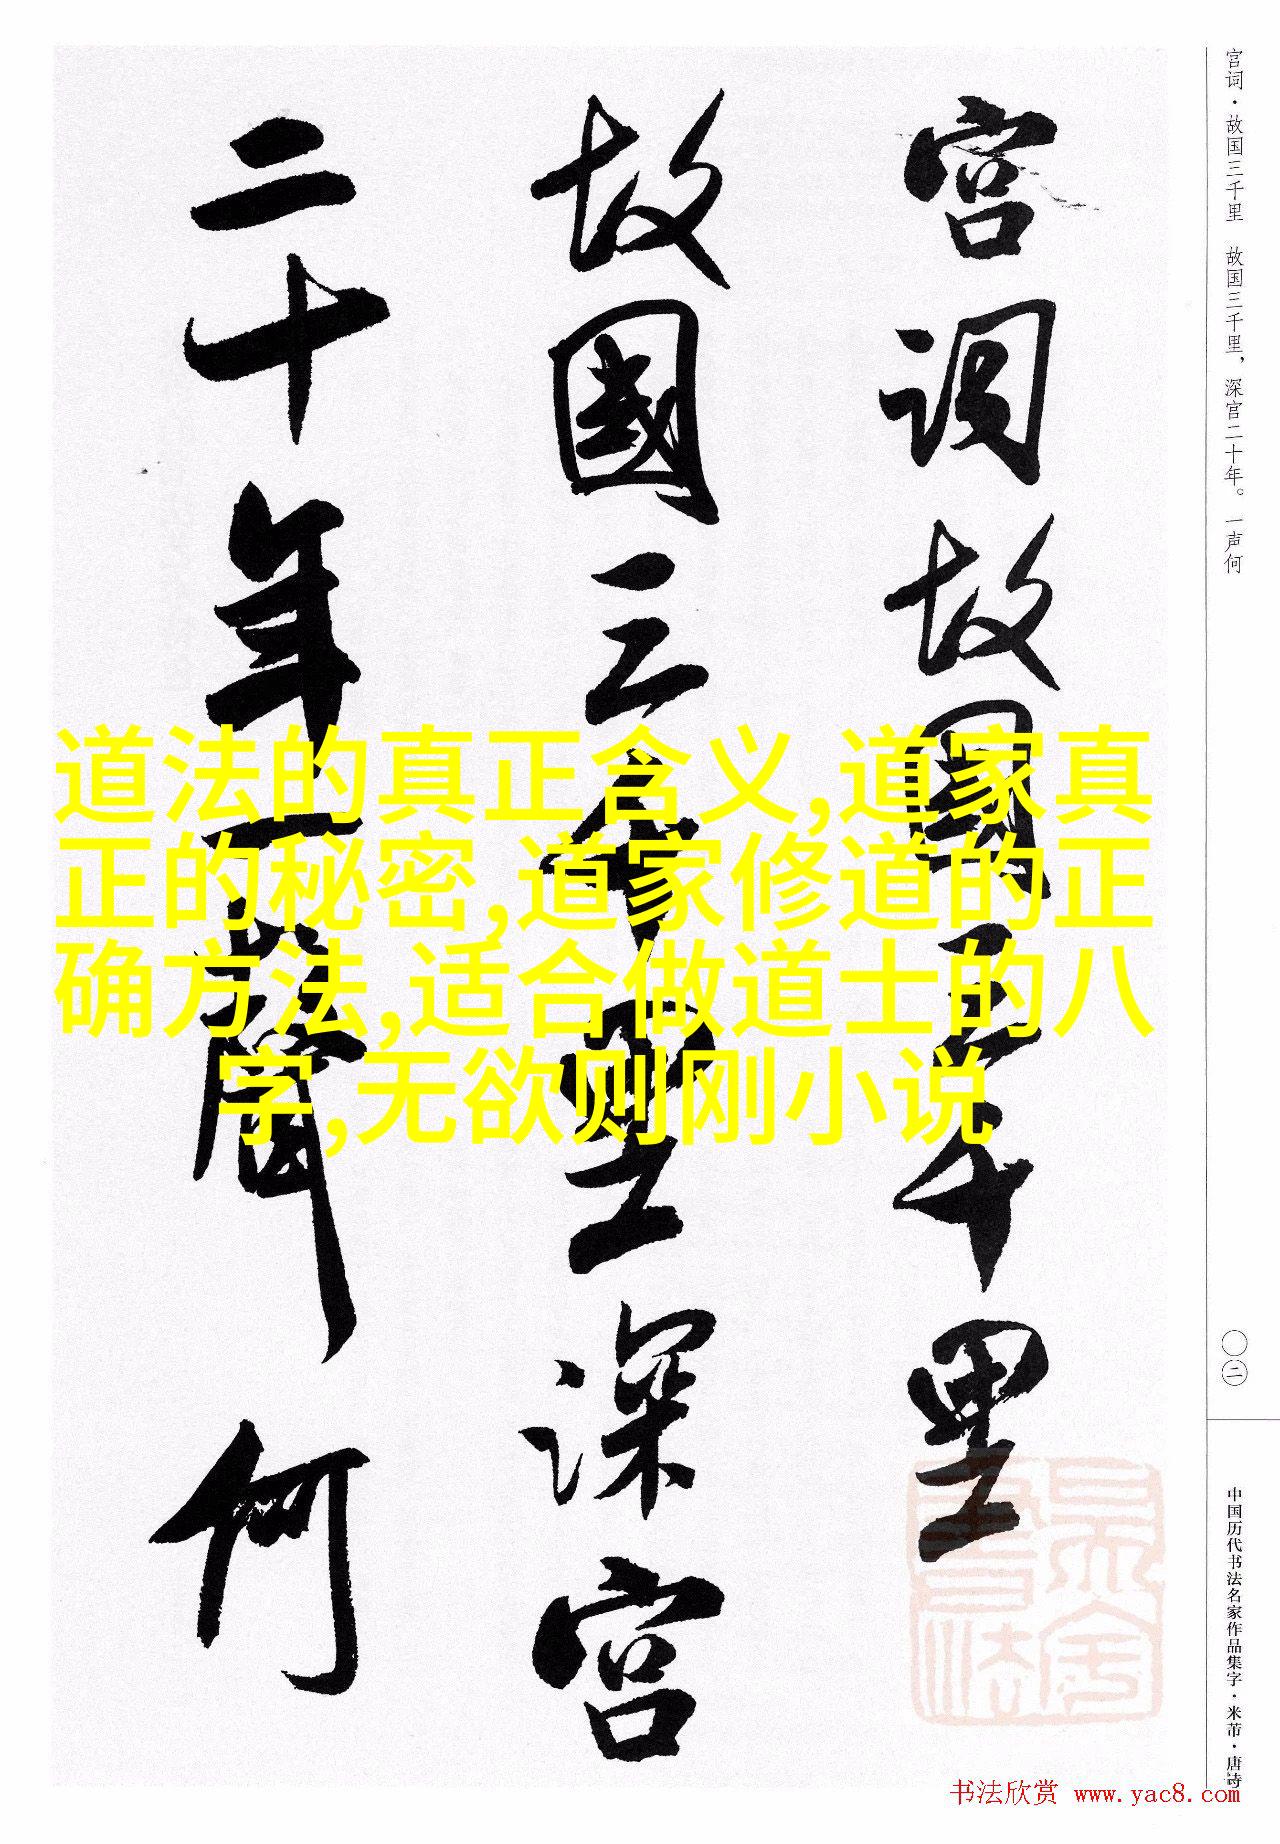 宫词·故国三千里　故国三千里，深宫二十年。一声何
宫词故國三千里
故國三千里深宫
二十年一聲何
道法的真正含义,道家真
正的秘密,道家修道的正
确方法,适合做道士的八
字,无欲则刚小说
〇二
中国历代书法名家作品集字·米芾·唐诗
书法欣赏 www.yac8.com